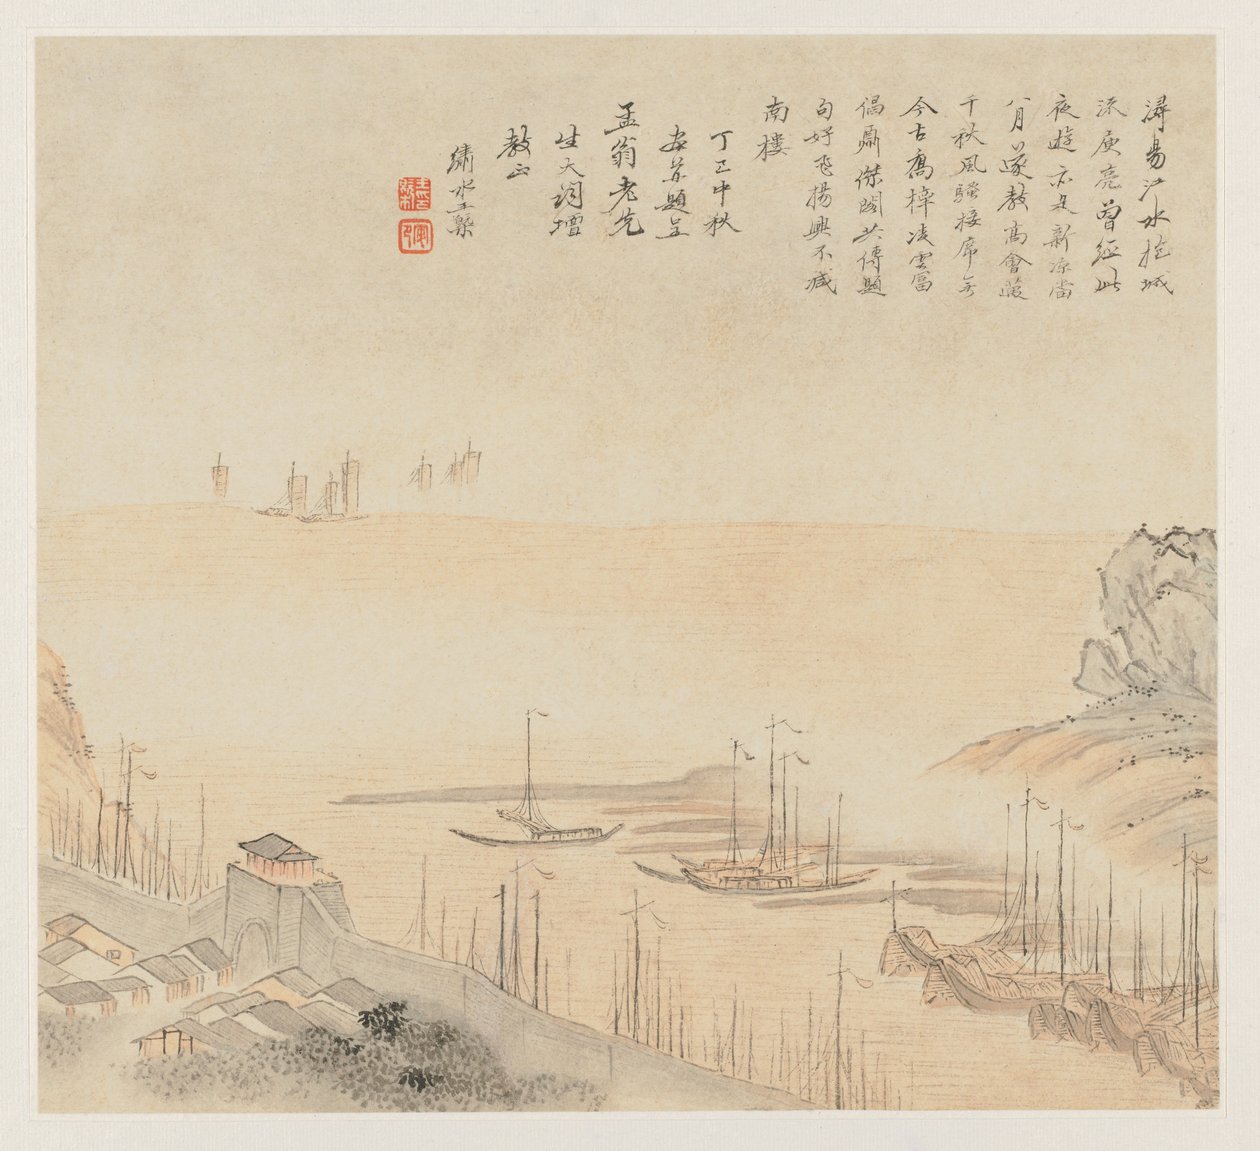 潯昜江水抱城
流庾亮曾經此
夜遊亦是新涼當
八月遂教高會藐
千秋風騷接席無
今古喬梓凌雲富
倡酬傑閣共傳題
句好飛揚興不减
南樓
丁巳中秋
畫并題呈
孟翁老先
生大詞壇
教正
繡水王槩